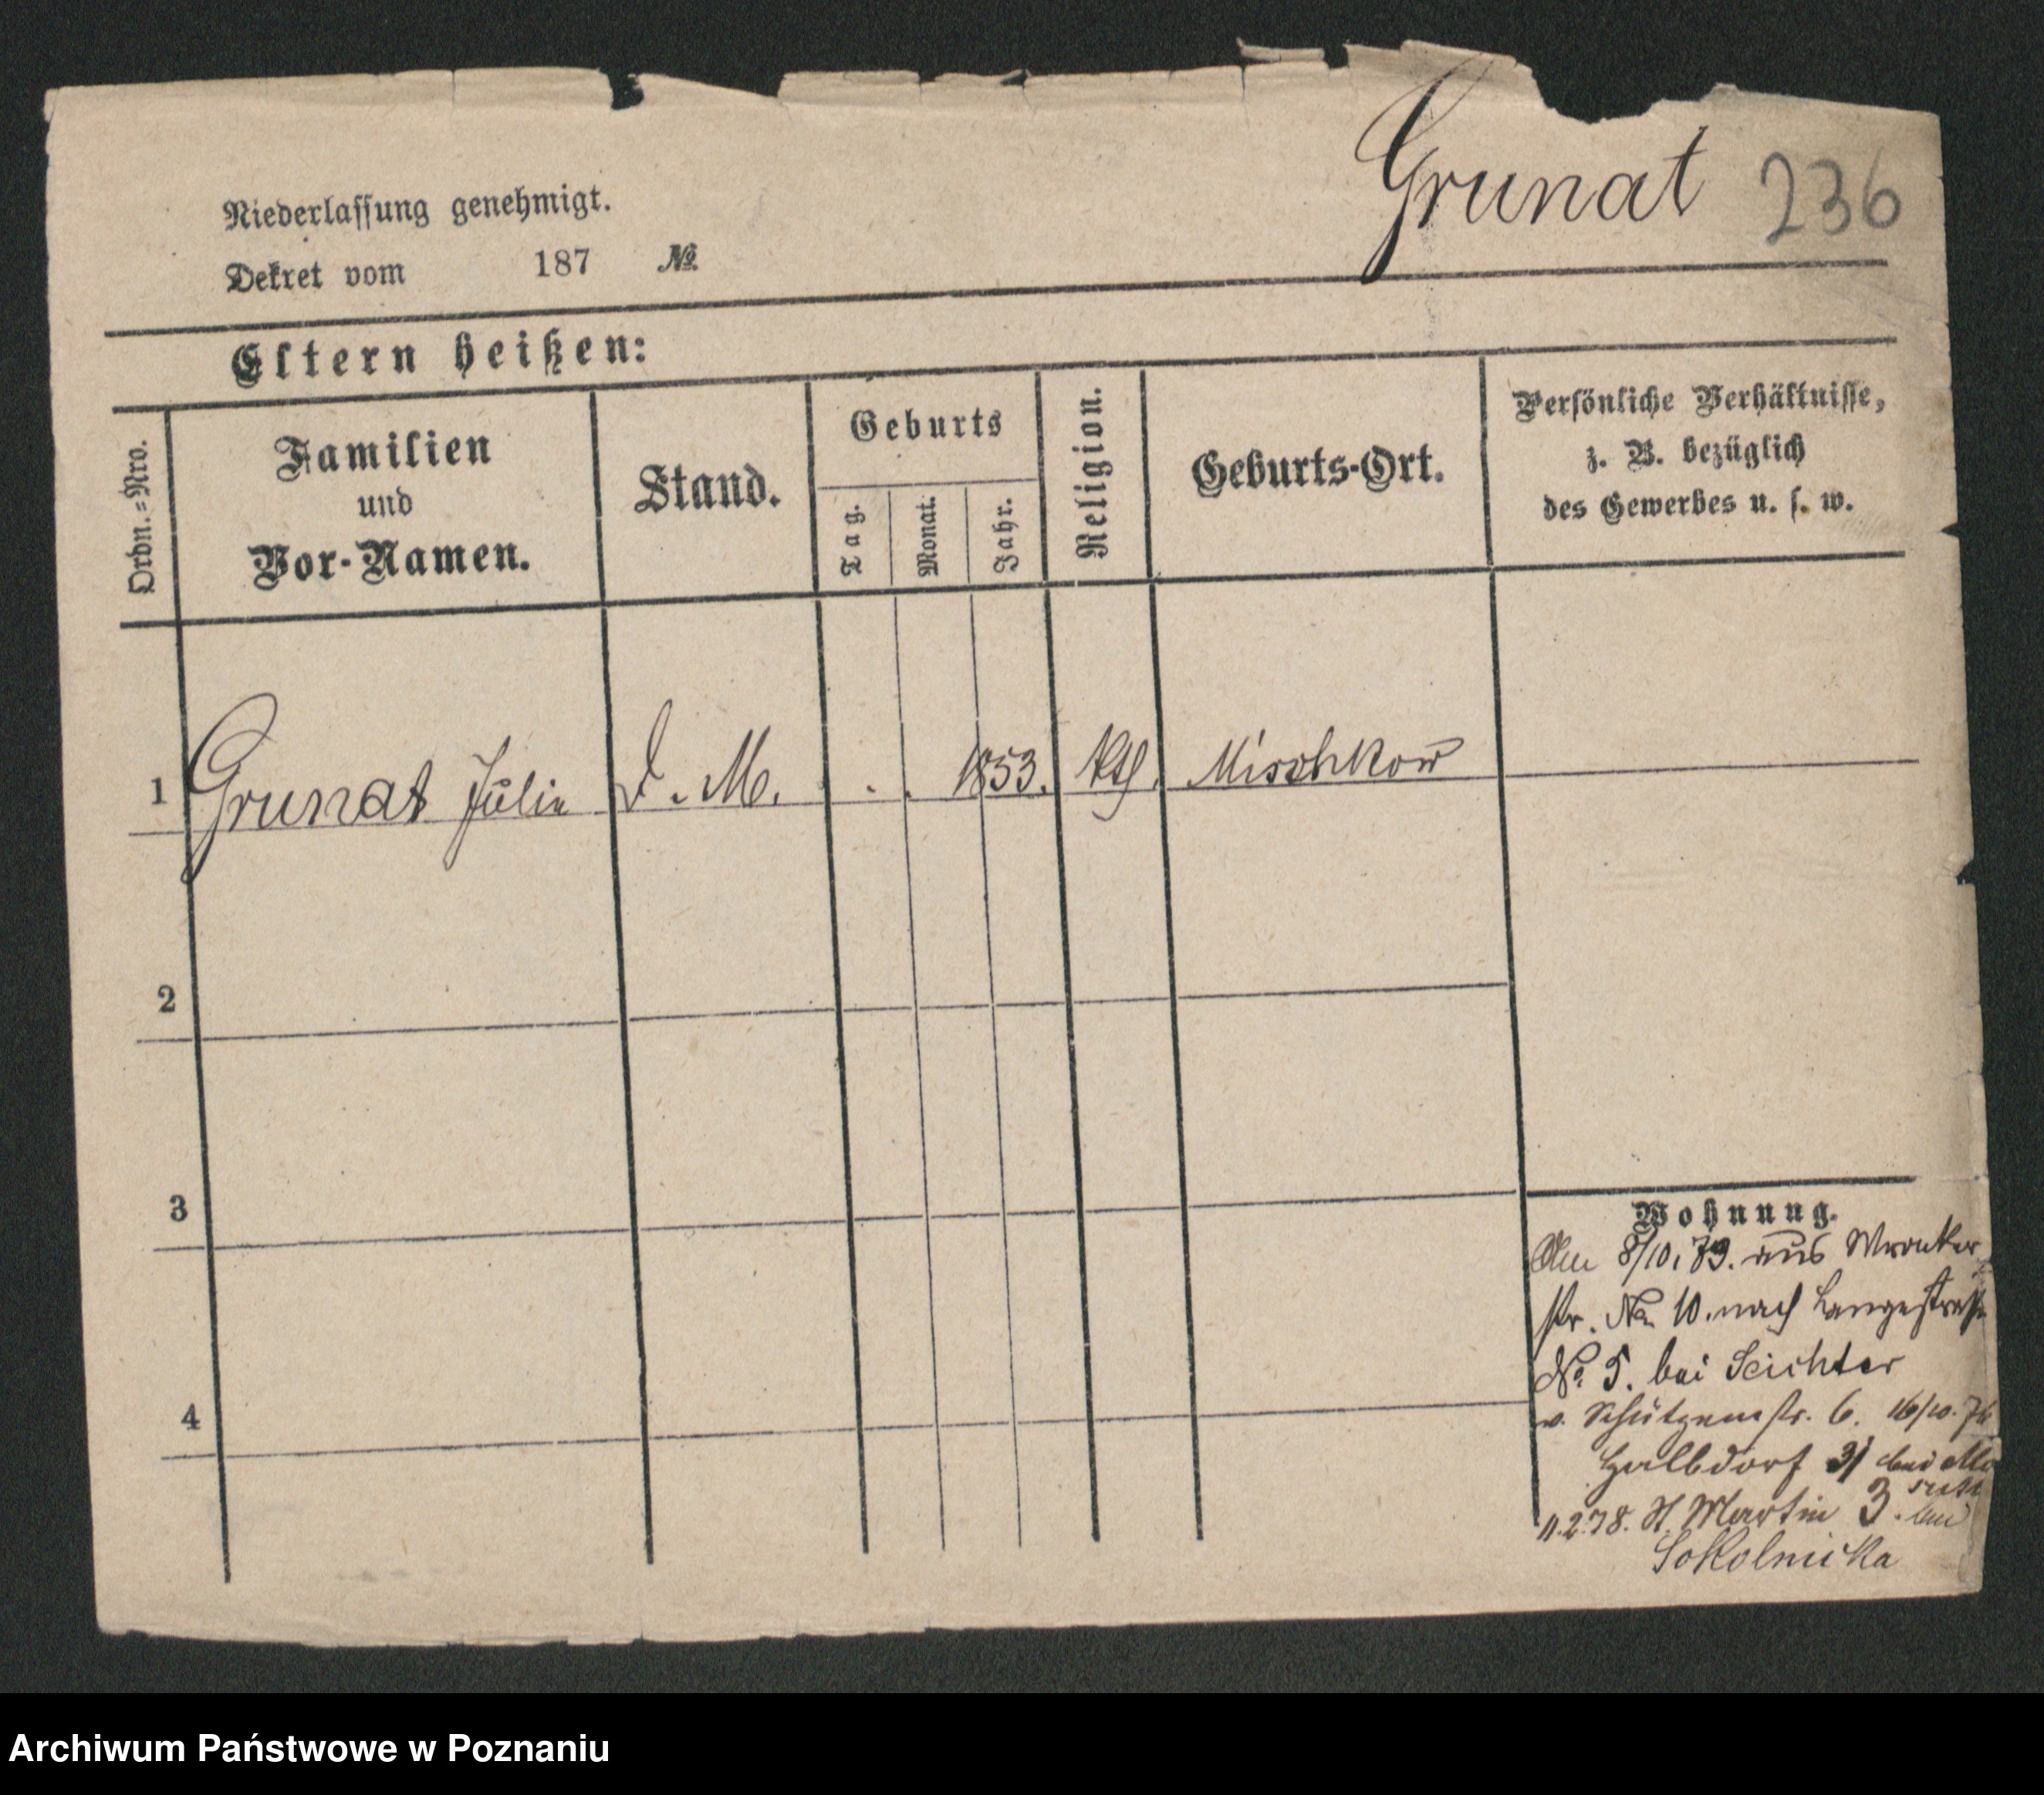 Grunat 236
Niederlassung genehmigt.
Dekret vom 187 №
Eltern heißen:
Ordn.=Nro.
Familien
und
Vor-Namen.
Stand.
Geburts
Tag.
Monat.
Jahr.
Religion.
Geburts-Ort.
Persönliche Verhältnisse,
z. B. bezüglich
des Gewerbes u. s. w.
1 Grunat Julie D. M. . . 1853. kth. Mischkow
2
3
4
Wohnung.
8/10, aus Wronker
str. No 10. nach Langestraße
No. 5. bei Seichter
v. Schützenstr. 6. 16/10.
Halbdorf 31 bei
11.2.78. St. Martin 3. bei
Sokolnicka
Archiwum Państwowe w Poznaniu